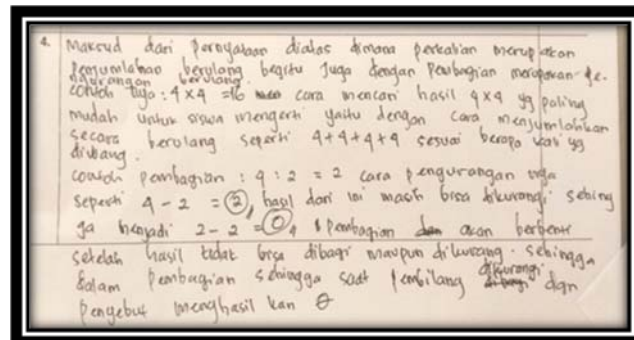 4. Maksud dari Pernyataan diatas dimana perkalian merupakan
Penjumlahan berulang begitu Juga dengan Pembagian merupakan Pe-
ngurangan berulang.
contoh nya : 4 x 4 = 16 cara mencari hasil 4x4 yg paling
mudah untuk siswa mengerti yaitu dengan cara menjumlahkan
secara berulang seperti 4+4+4+4 sesuai berapa kali yg
diulang.
contoh pembagian : 4 : 2 = 2 cara pengurangan nya
seperti 4 - 2 = 2, hasil dari ini masih bisa dikurangi sehing
ga menjadi 2 - 2 = 0, Pembagian akan berhenti
setelah hasil tidak bisa dibagi maupun dikurang. sehingga
dalam pembagian sehingga saat Pembilang dikurangi dgn
Penyebut menghasil kan 0